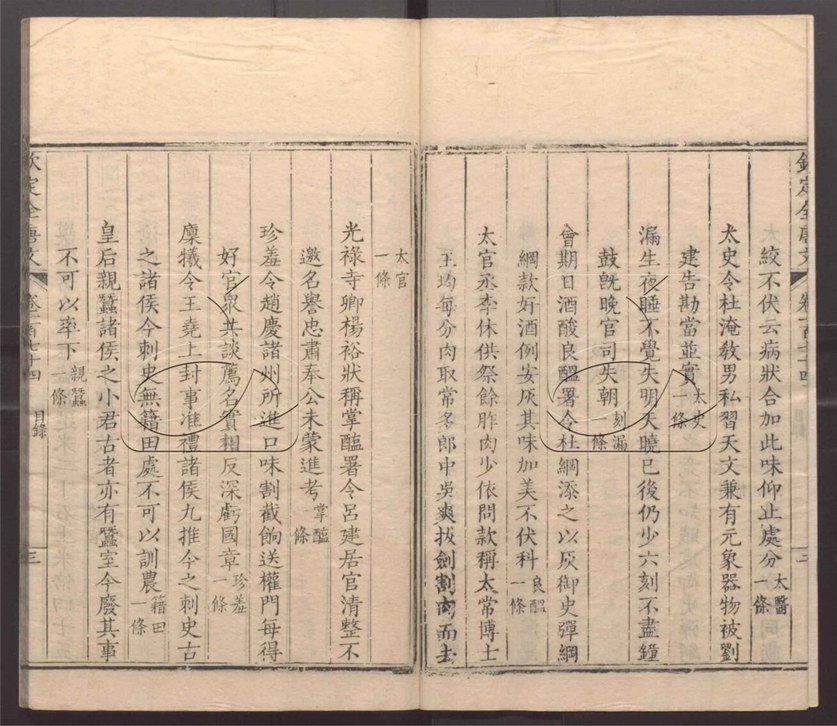 欽定全唐文 卷一百七十四 三
絞不伏云病狀合加此味仰正處分太醫一條
太史令杜淹敎男私習天文兼有元象器物被劉
建告勘當並實太史一條
漏生夜睡不覺失明天曉已後仍少六刻不盡鐘
鼓旣晚官司失朝刻漏一條
會期日酒酸良醞署令杜綱添之以灰御史彈綱
綱款好酒例安灰其味加美不伏科良醞一條
太官丞李休供祭餘胙肉少依問款稱太常博士
王均每分肉取常多郎中吳爽拔劍割肉而去
太官一條
光祿寺卿楊裕狀稱掌醢署令呂建居官清整不
邀名譽忠肅奉公未蒙進考掌醢一條
珍羞令趙慶諸州所進口味割截餉送權門每得
好官衆共談薦名實相反深虧國章珍羞一條
廩犧令王堯上封事准禮諸侯九推今之刺史古
之諸侯今刺史無籍田處不可以訓農籍田一條
皇后親蠶諸侯之小君古者亦有蠶室今廢其事
不可以率下親蠶一條
欽定全唐文 卷一百七十四 目錄 三